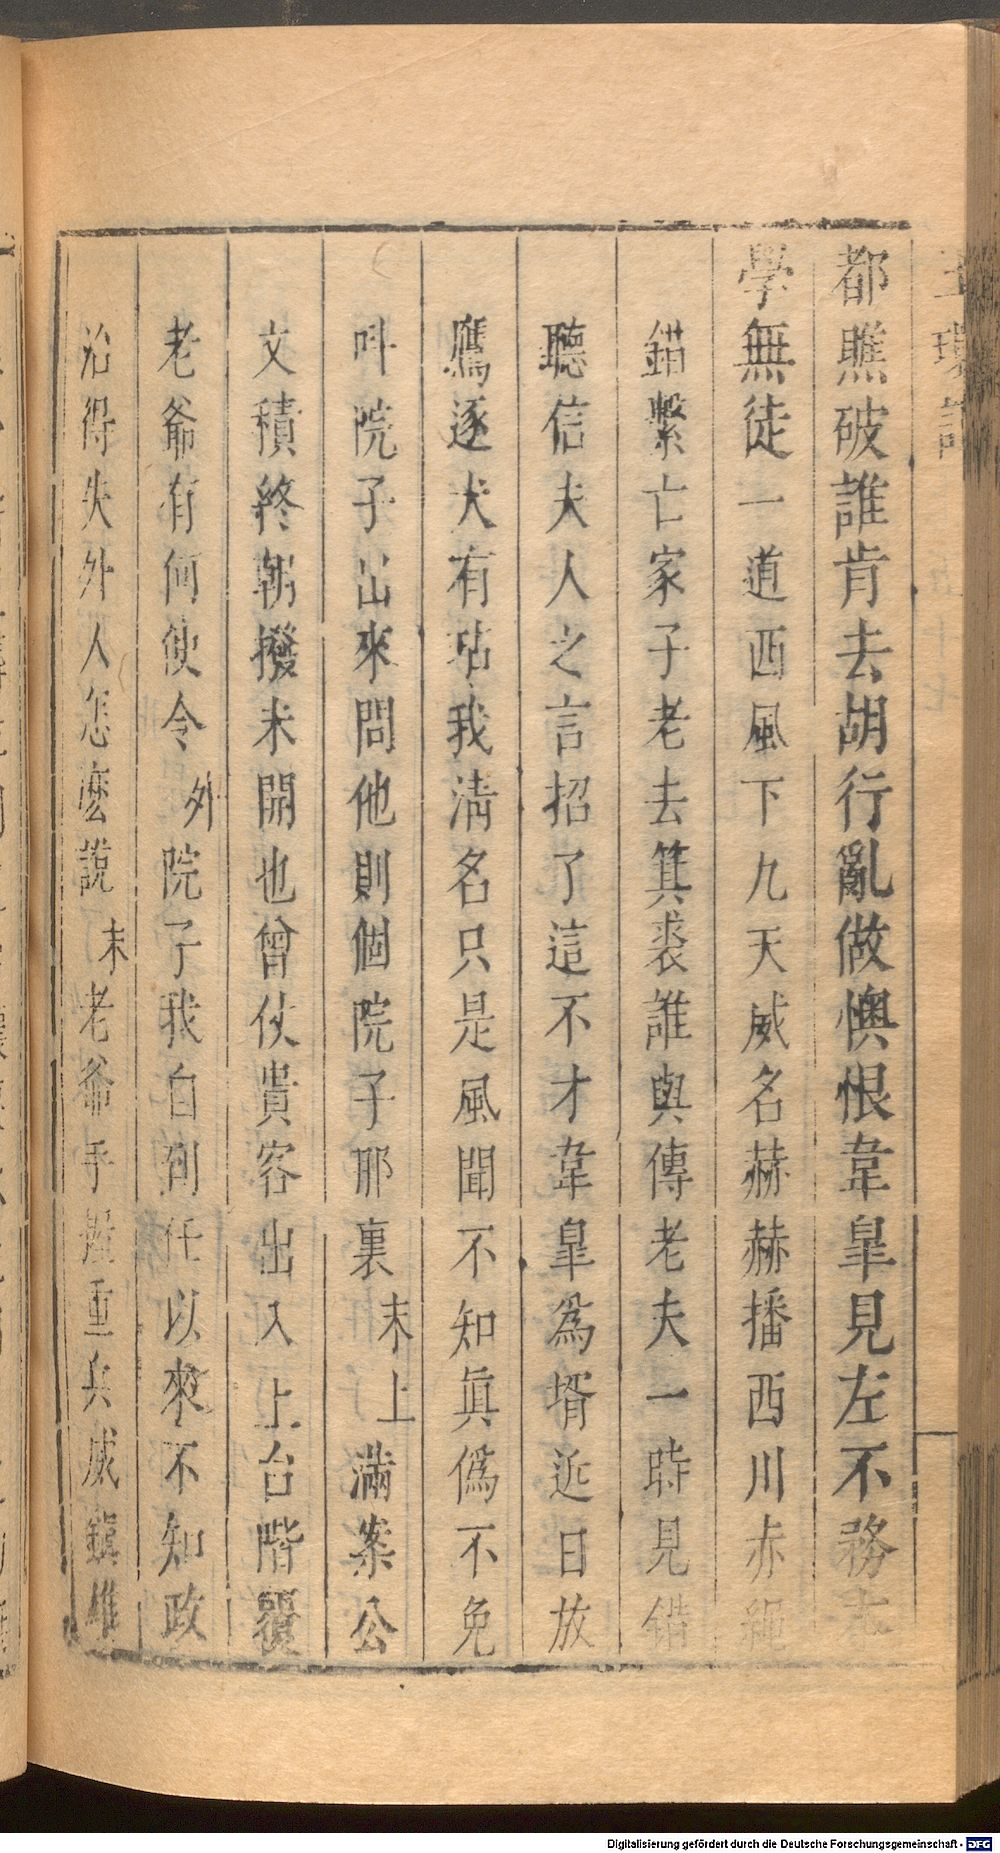 玉環記
都瞧破誰肯去胡行亂做懊恨韋臯見左不務志
學無徒一道西風下九天威名赫赫播西川赤繩
錯繫亡家子老去箕裘誰與傳老夫一時見錯
聽信夫人之言招了這不才韋臯爲壻近日放
鷹逐犬有玷我淸名只是風聞不知眞僞不免
叫院子出來問他則個院子耶裏末上滿案公
文積終朝撥未開也曾伏貴客出入上台階覆
老爺有何使令外院子我自到任以來不知政
治得失外人怎麽說末老爺手握重兵威鎭雄
Digitalisierung gefördert durch die Deutsche Forschungsgemeinschaft - DFG